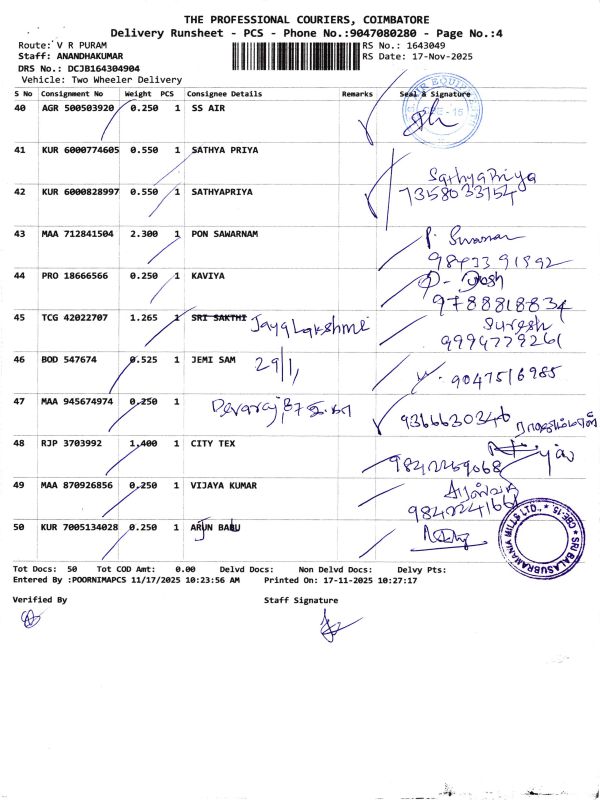 THE PROFESSIONAL COURIERS, COIMBATORE
Delivery Runsheet - PCS - Phone No.:9047080280 - Page No.:4
Route: V R PURAM RS No.: 1643049
Staff: ANANDHAKUMAR RS Date: 17-Nov-2025
DRS No.: DCJB164304904
Vehicle: Two Wheeler Delivery
S No Consignment No Weight PCS Consignee Details Remarks Seal & Signature
40 AGR 500503920 0.250 1 SS AIR
41 KUR 6000774605 0.550 1 SATHYA PRIYA
SathyaPriya
42 KUR 6000828997 0.550 1 SATHYAPRIYA 7358033754
43 MAA 712841504 2.300 1 PON SAWARNAM
44 PRO 18666566 0.250 1 KAVIYA
9788818834
45 TCG 42022707 1.265 1 SRI SAKTHI Jayalakshmi Suresh
9994779261
46 BOD 547674 0.525 1 JEMI SAM 29/1, 9047516985
47 MAA 945674974 0.250 1 Devaraj, 87 9366630346
48 RJP 3703992 1,400 1 CITY TEX
49 MAA 870926856 0.250 1 VIJAYA KUMAR
50 KUR 7005134028 0.250 1 ARJUN BABU
SRI BALASUBRAMANIA MILLS LTD., * CBE-15 *
Tot Docs: 50 Tot COD Amt: 0.00 Delvd Docs: Non Delvd Docs: Delvy Pts:
Entered By :POORNIMAPCS 11/17/2025 10:23:56 AM Printed On: 17-11-2025 10:27:17
Verified By Staff Signature